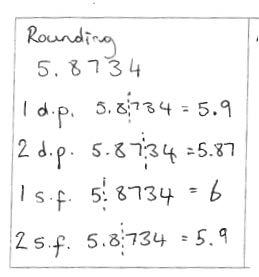 Rounding
5.8734
1 d.p. 5.8734 = 5.9
2 d.p. 5.8734 = 5.87
1 s.f. 5.8734 = 6
2 s.f. 5.8734 = 5.9